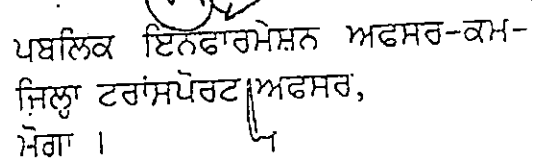 ਪਬਲਿਕ ਇਨਫਾਰਮੇਸ਼ਨ ਅਫਸਰ-ਕਮ-
ਜ਼ਿਲ੍ਹਾ ਟਰਾਂਸਪੋਰਟ ਅਫਸਰ,
ਮੋਗਾ ।